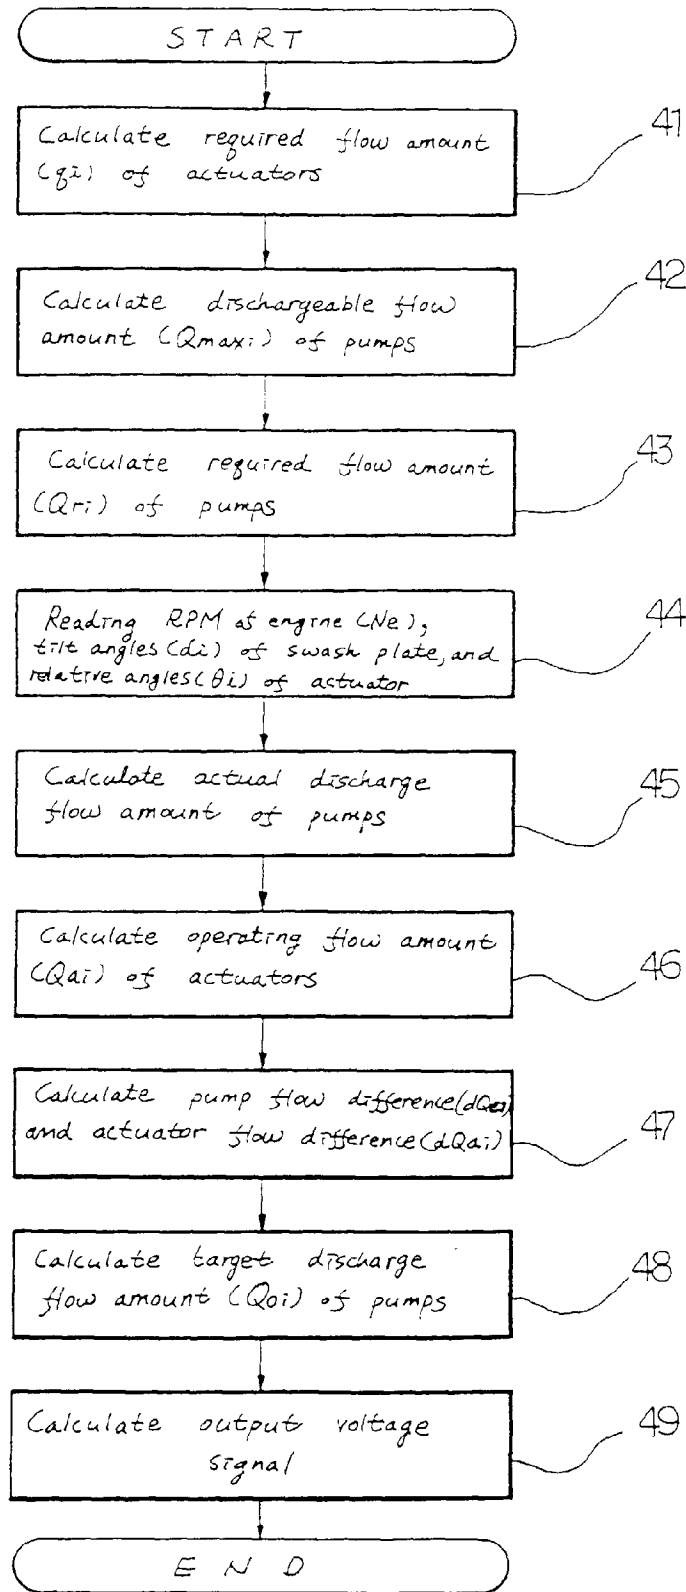 START
Calculate required flow amount
(qi) of actuators
41
Calculate dischargeable flow
amount (Qmaxi) of pumps
42
Calculate required flow amount
(Qri) of pumps
43
Reading RPM of engine (Ne),
tilt angles (di) of swash plate, and
relative angles (θi) of actuator
44
Calculate actual discharge
flow amount of pumps
45
Calculate operating flow amount
(Qai) of actuators
46
Calculate pump flow difference
and actuator flow difference (dQai)
47
Calculate target discharge
flow amount (Qoi) of pumps
48
Calculate output voltage
signal
49
END